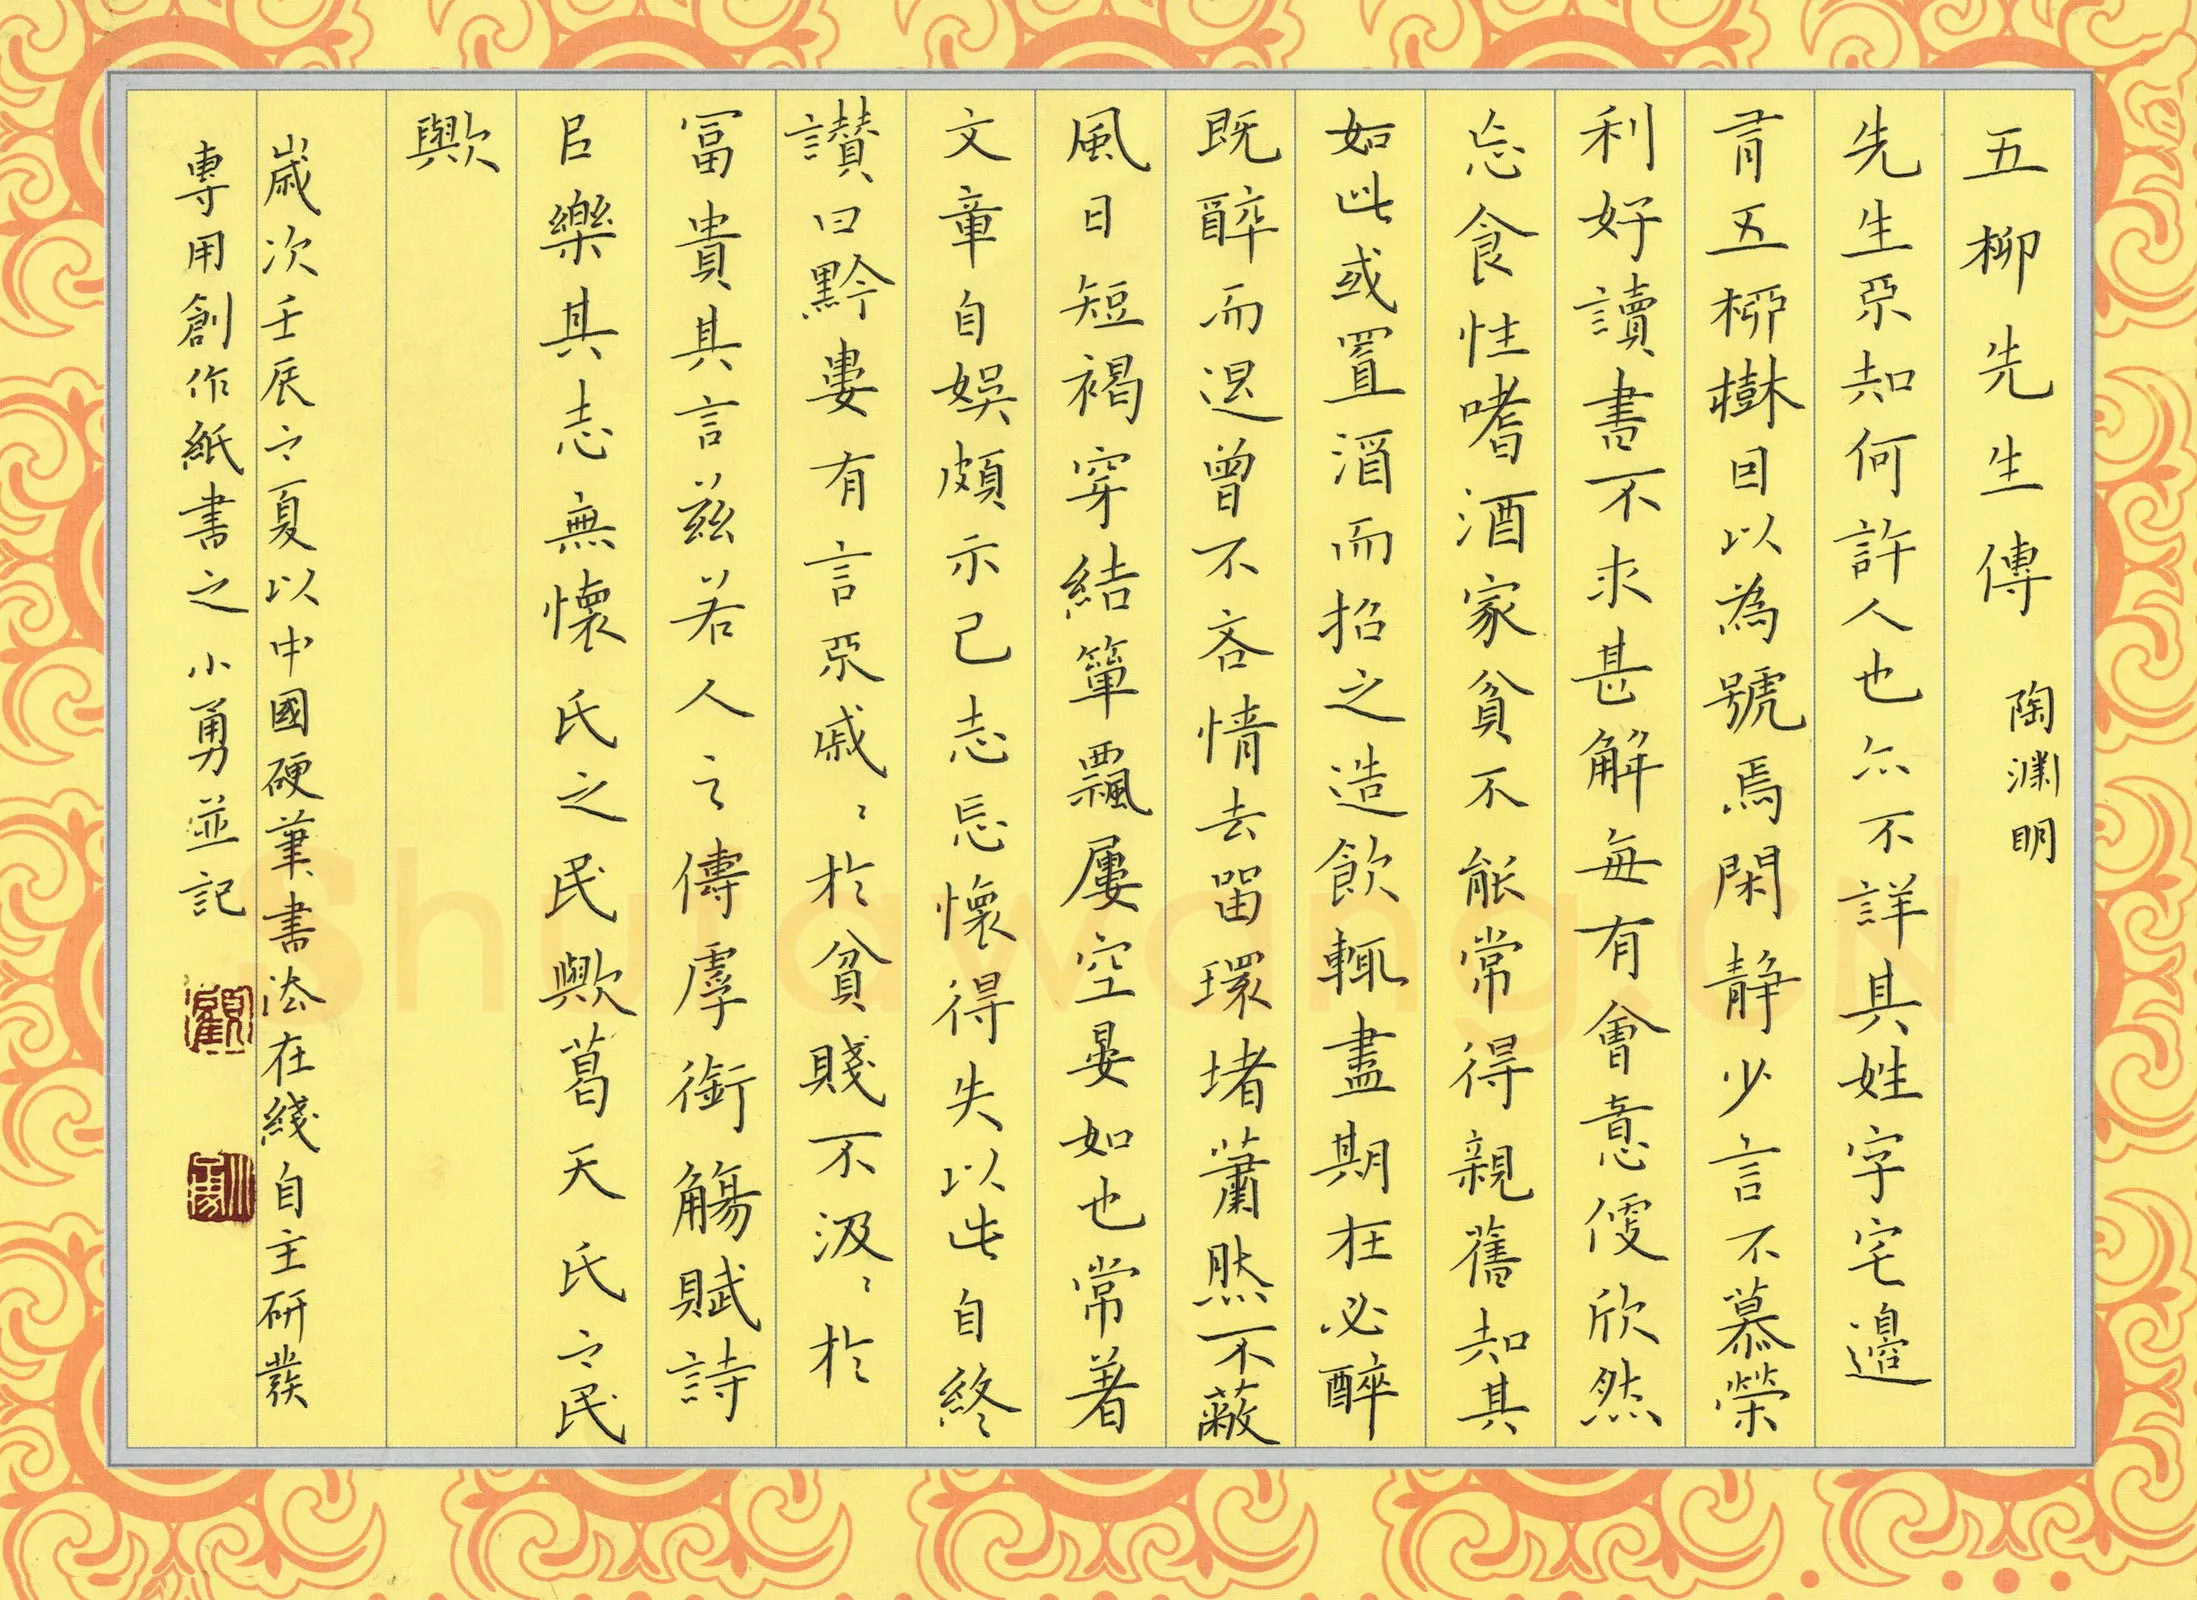 五柳先生傳 陶淵明
先生不知何許人也亦不詳其姓字宅邊
有五柳樹因以為號焉閑静少言不慕榮
利好讀書不求甚解每有會意便欣然
忘食性嗜酒家貧不能常得親舊知其
如此或置酒而招之造飲輒盡期在必醉
既醉而退曾不吝情去留環堵蕭然不蔽
風日短褐穿結簞飄屢空晏如也常著
文章自娛頗示己志忘懷得失以此自終
讃曰黔婁有言不戚〻於貧賤不汲〻於
冨貴其言兹若人之儔虖銜觴賦詩
以樂其志無懷氏之民歟葛天氏之民
歟
歲次壬辰之夏以中國硬筆書法在綫自主研發
專用創作紙書之 小勇並記
顧
小勇
Shufawang.CN